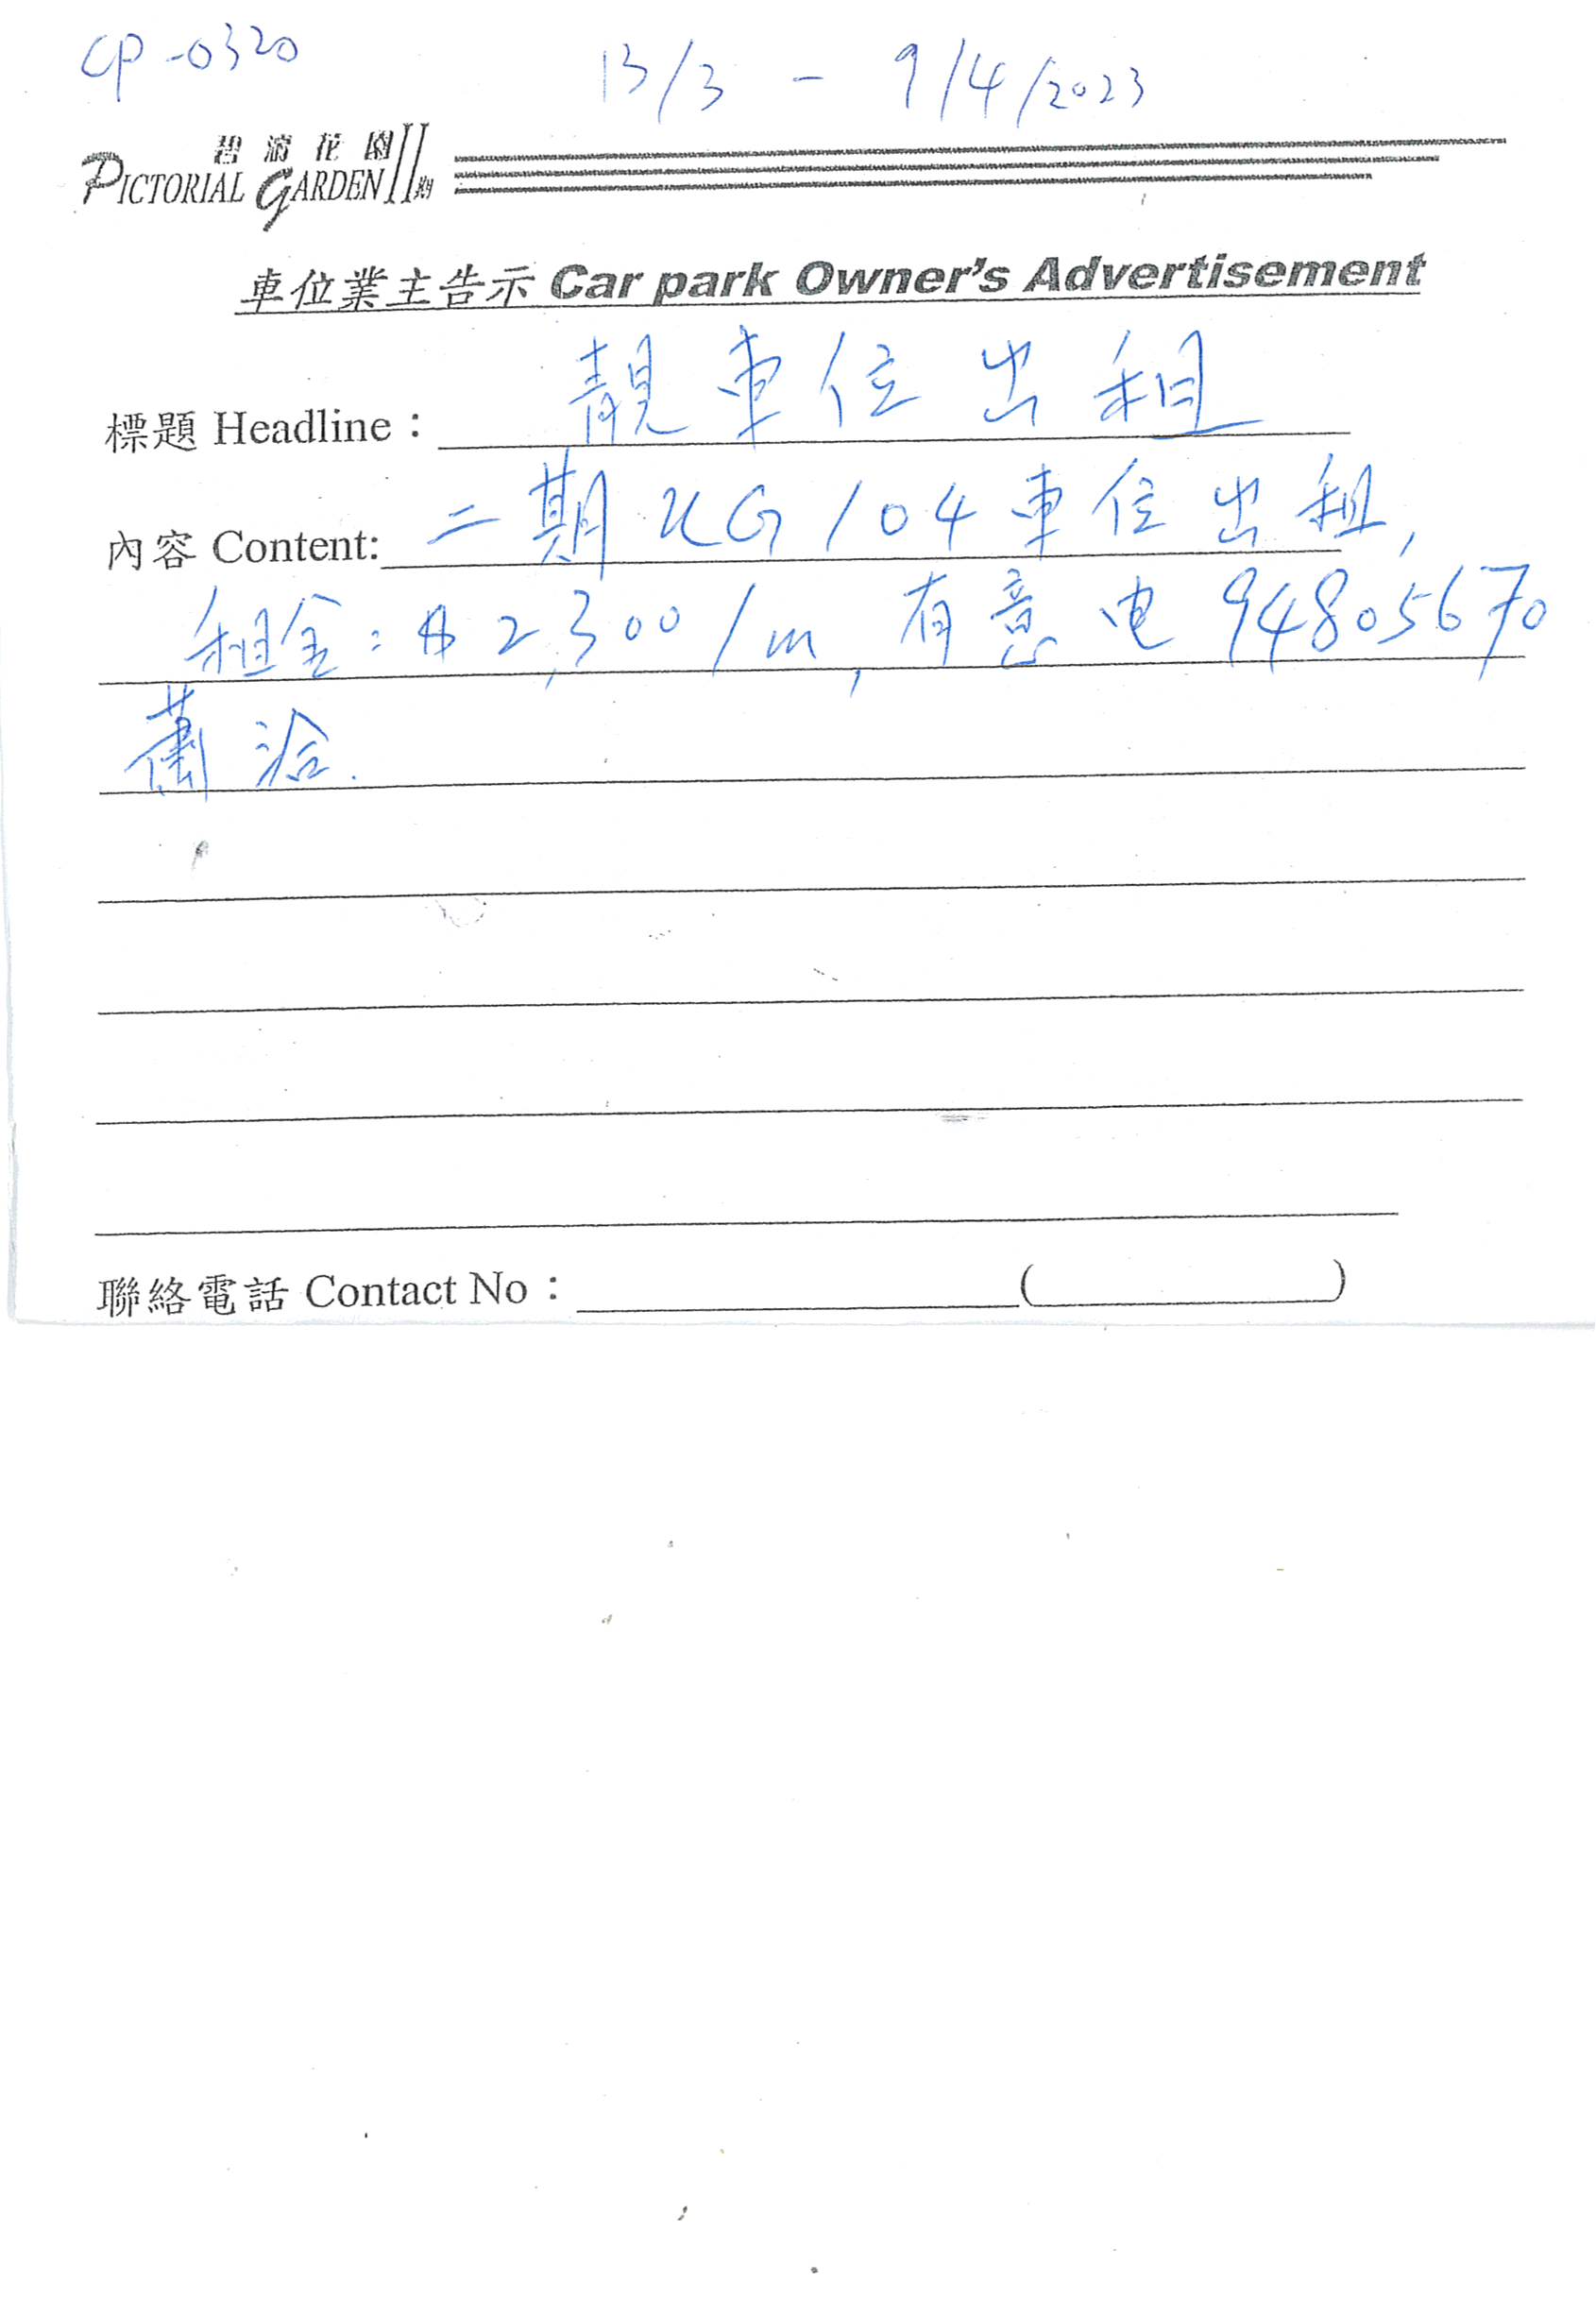 CP-0320
13/3 - 9/4/2023
碧濤花園 II期
PICTORIAL GARDEN
車位業主告示 Car park Owner's Advertisement
標題 Headline： 靚車位出租
內容 Content: 二期 UG 104 車位出租,
租金: $2,300/m, 有意电 94805670
蕭洽.
聯絡電話 Contact No： ( )